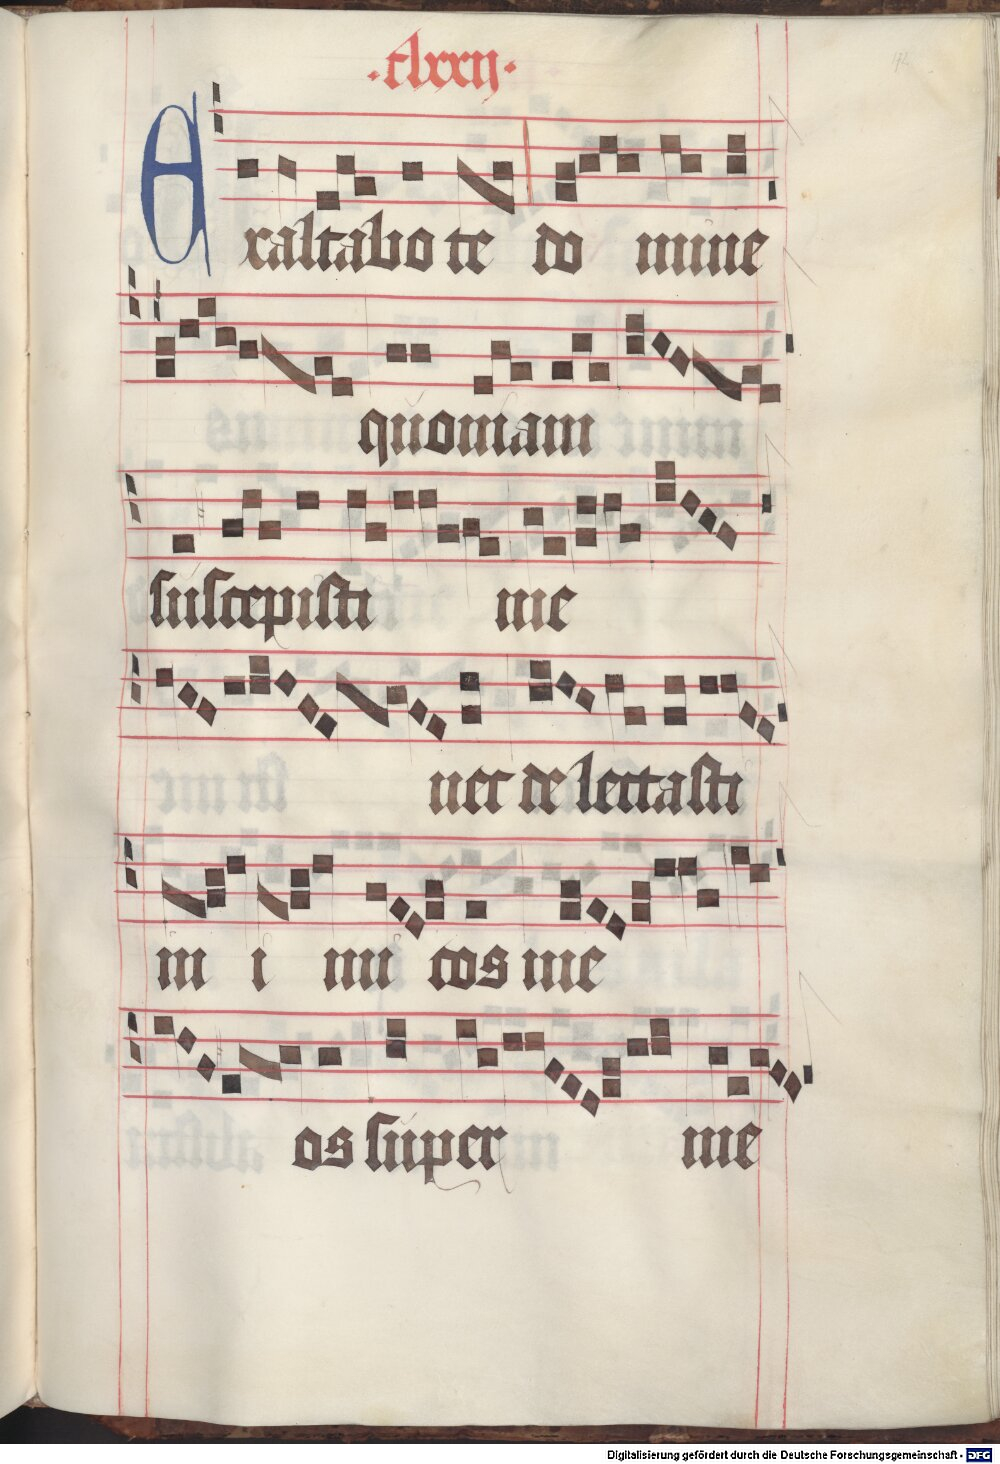 ·clxxij·
172
Exaltabo te do mine
quoniam
suscepisti me
nec de lectasti
in i mi cos me
os super me
Digitalisierung gefördert durch die Deutsche Forschungsgemeinschaft - DFG